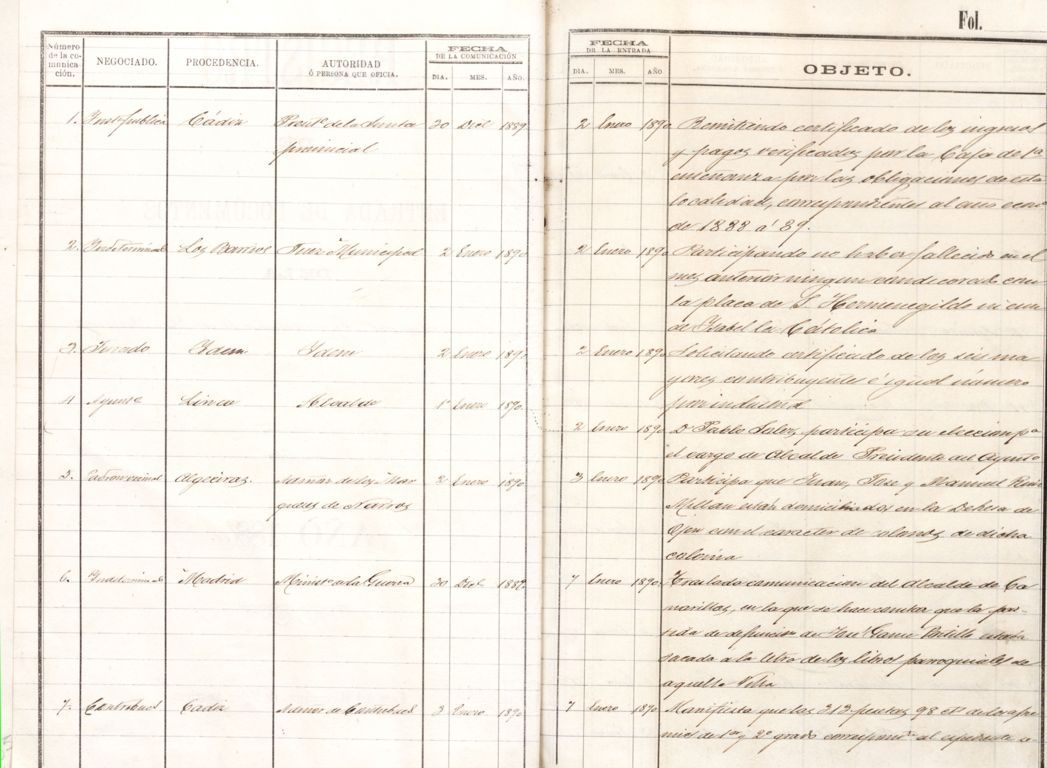 Fol.
Número de la comunicación.
NEGOCIADO.
PROCEDENCIA.
AUTORIDAD
Ó PERSONA QUE OFICIA.
FECHA
DE LA COMUNICACIÓN
DIA. MES. AÑO.
FECHA
DE LA ENTRADA
DIA. MES. AÑO
OBJETO.
1. Inst. publica Cádiz Presid.te de la Junta 30 Dicl 1889 2 Enero 1890 Remitiendo certificado de los ingresos
provincial y pagos verificados por la Caja de 1ª
enseñanza por las obligaciones de esta
localidad, correspondientes al año econ.
de 1888 á 89.
2. Indeterminado Los Barrios Juez Municipal 2 Enero 1890 2 Enero 1890 Participando no haber fallecido en el
mes anterior ningun condecorado con
la placa de S. Hermenegildo ni cruz
de Isabel la Católica
3. Jurado Idem Idem 2 Enero 1890 2 Enero 1890 Solicitando certificado de los seis ma
yores contribuyentes é igual número
por industria
4 Ayunt.º Linea Alcalde 1º Enero 1890 2 Enero 1890 D. Pablo participa su eleccion pª
el cargo de Alcalde Presidente del Ayunto
5. Padron vecinal Algeciras. de los Mar 2 Enero 1890 3 Enero 1890 Participa que Juan, Jose y Manuel
queses de Millan están domiciliados en la Dehesa de
con el caracter de colonos de dicha
colonia
6. Indeterminado Madrid Minist.º de la Guerra 30 Dicl 1889. 7 Enero 1890. Traslada comunicacion del Alcalde de Ca
narillas, en la que se hace constar que la par
tida de defuncion de José Portillo
sacada a la letra de los libros parroquiales de
aquella Villa
7. Cádiz 3 Enero 1890 7 Enero 1890 Manifiesta que las 313 pesetas 98 cts de los apre
mios de 1er y 2º grado